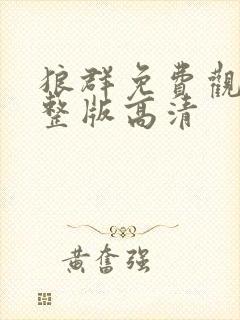 狼群免費觀
整版高清
黃奮强